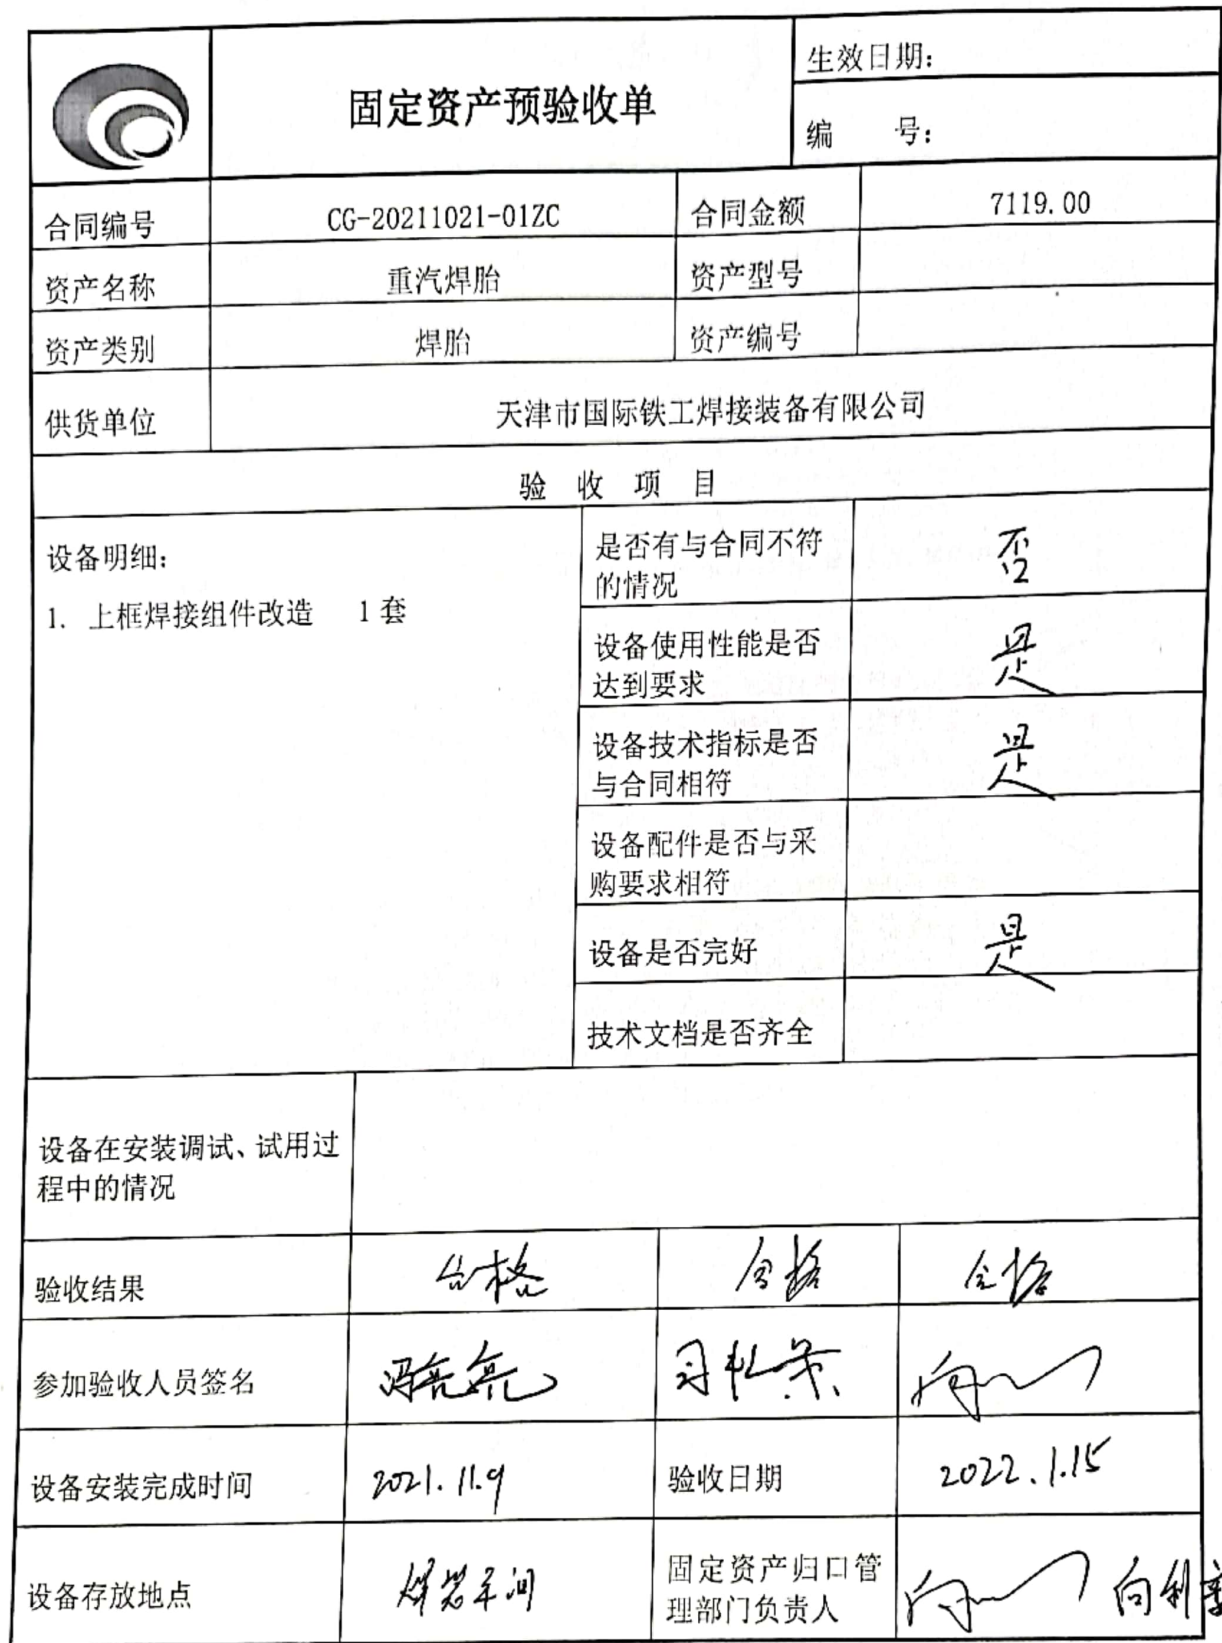 固定资产预验收单
生效日期：
编 号：
合同编号 CG-20211021-01ZC 合同金额 7119.00
资产名称 重汽焊胎 资产型号
资产类别 焊胎 资产编号
供货单位 天津市国际铁工焊接装备有限公司
验 收 项 目
设备明细：
1. 上框焊接组件改造 1套
是否有与合同不符
的情况
否
设备使用性能是否
达到要求
是
设备技术指标是否
与合同相符
是
设备配件是否与采
购要求相符
设备是否完好 是
技术文档是否齐全
设备在安装调试、试用过
程中的情况
验收结果 合格 合格 合格
参加验收人员签名 冯亮亮
设备安装完成时间 2021.11.9 验收日期 2022.1.15
设备存放地点 车间
固定资产归口管
理部门负责人
向利